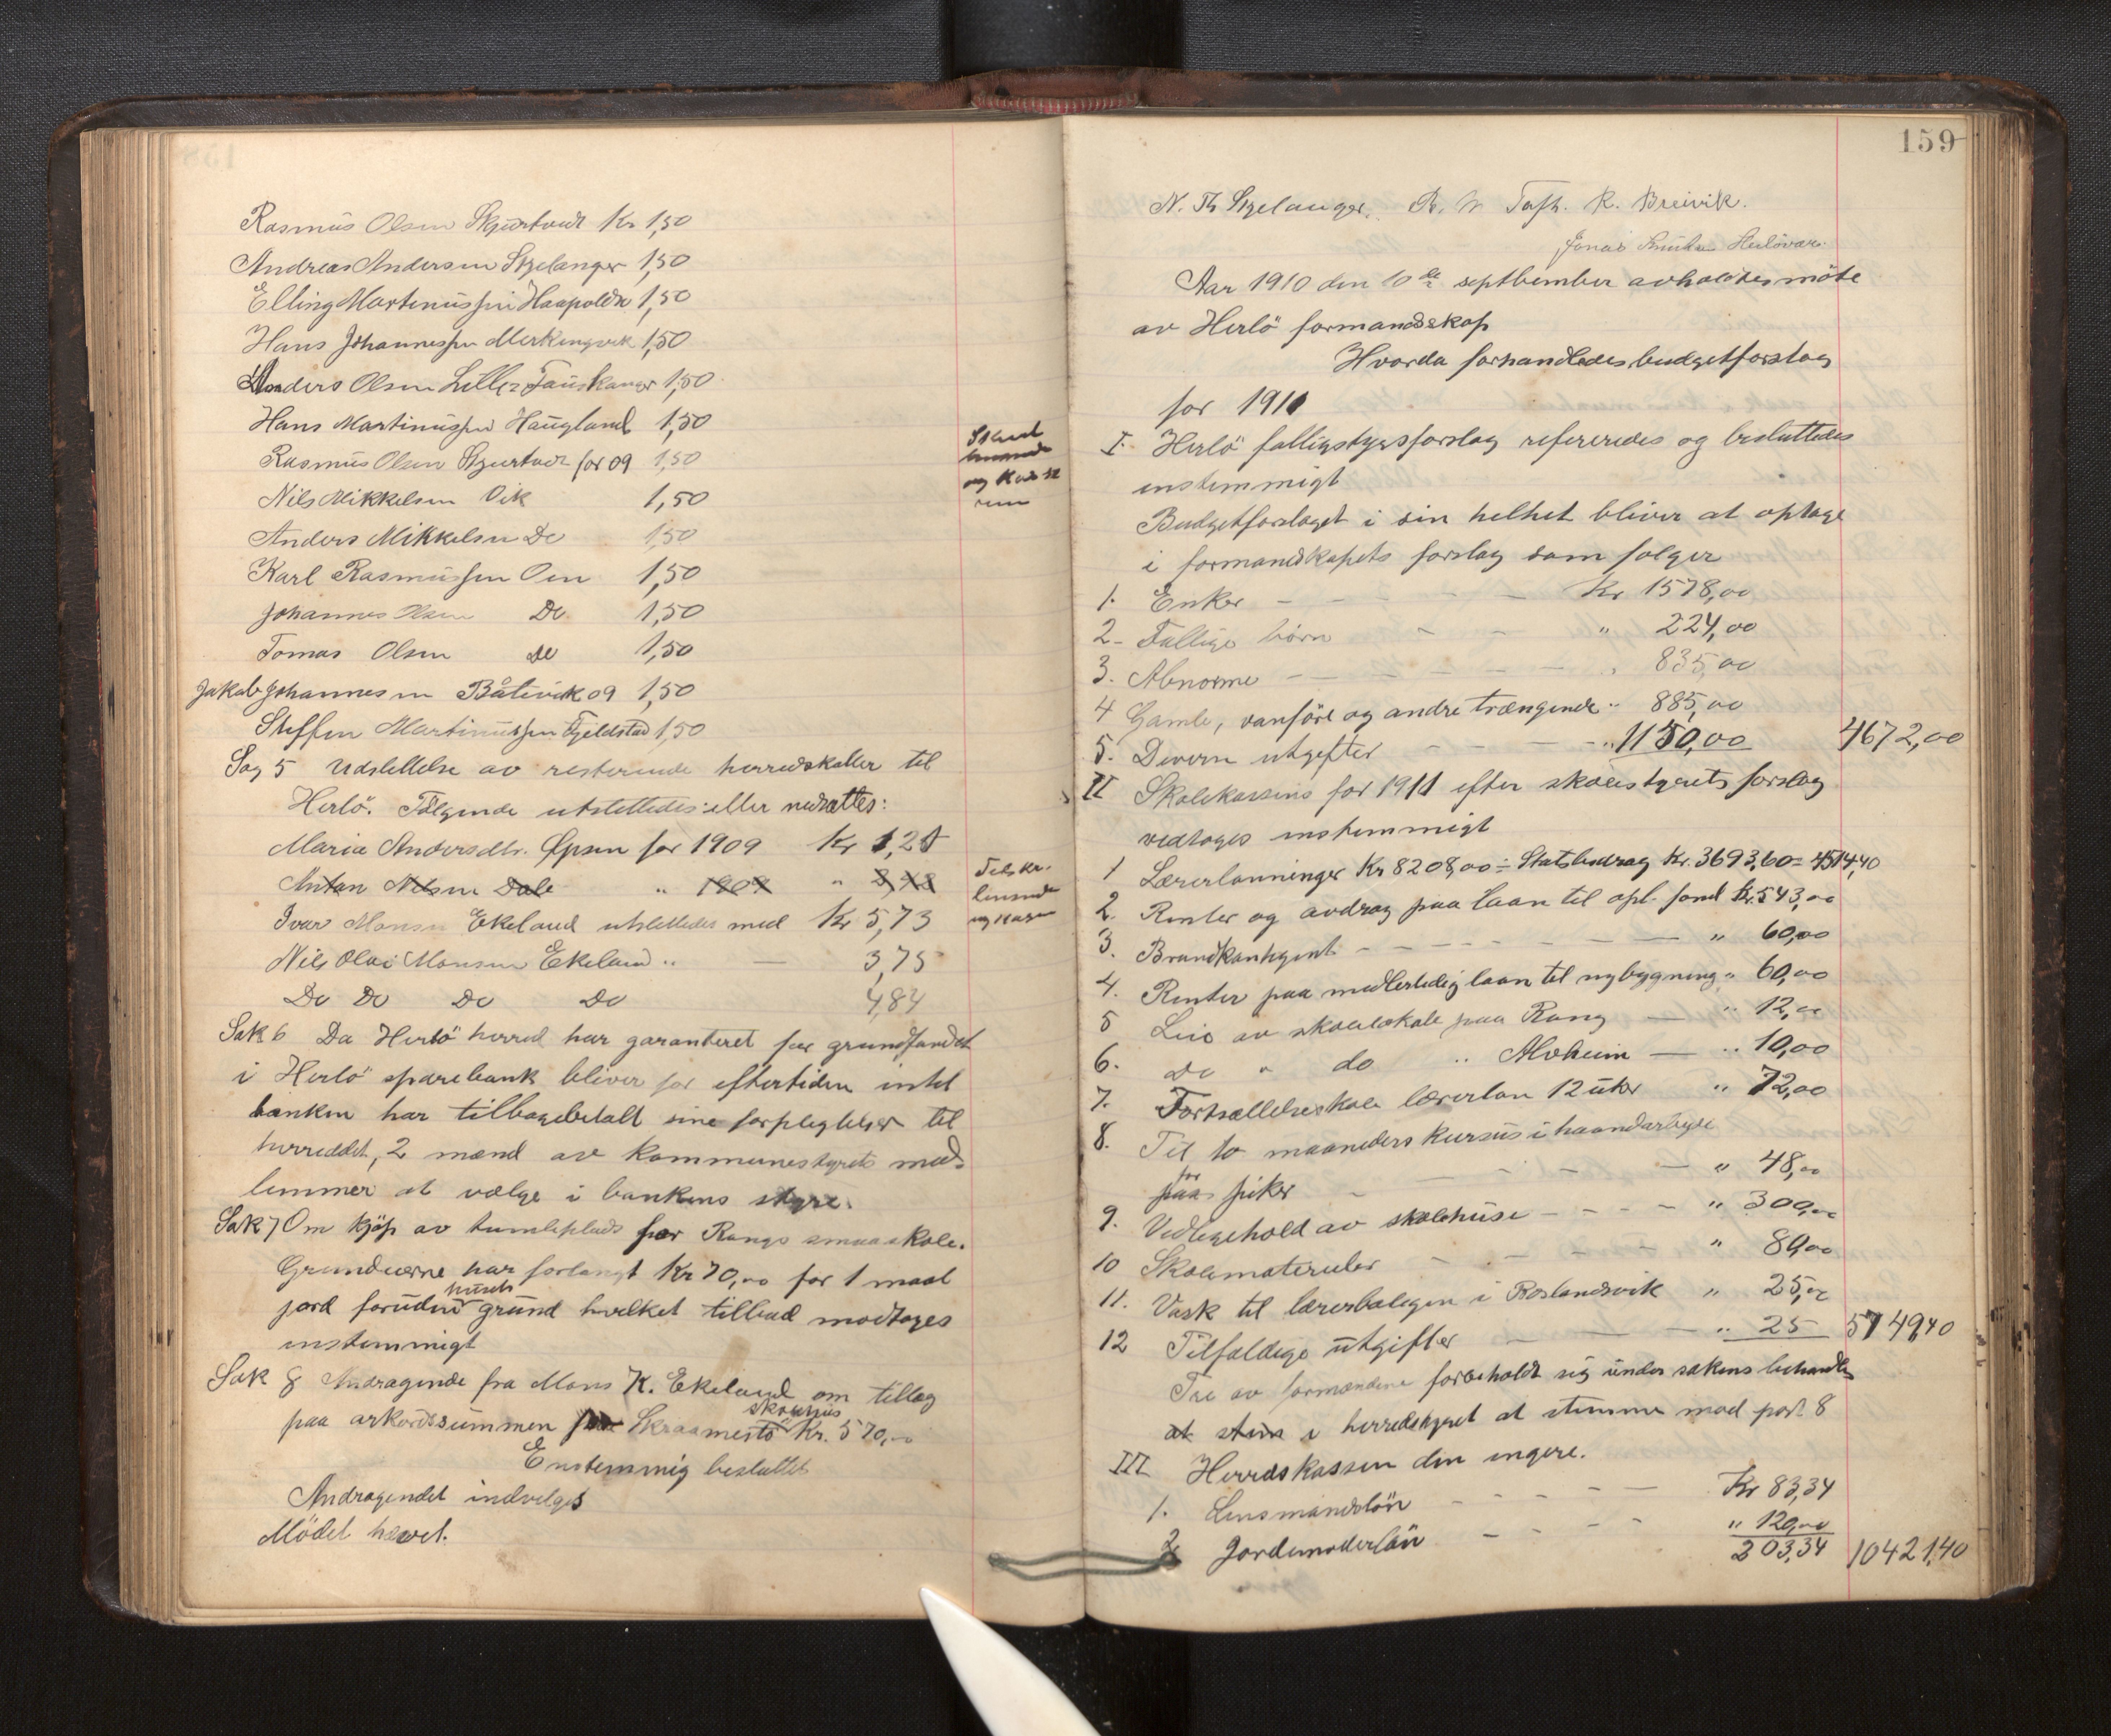 Rasmus Olsen Skjurtvedt Kr 1,50
Andreas Andersen Sjelanger 1,50
Elling Martinussen Haapoldn 1,50
Hans Johannessen Merkingsvik 1,50
Anders Olsen Lille Tauskanger 1,50
Hans Martinussen Haugland 1,50
Rasmus Olsen for 09 1,50
Nils Mikkelsen Vik 1,50
Anders Mikkelsen Do 1,50
Karl Rasmussen Oen 1,50
Johannes Olsen Do 1,50
Tomas Olsen do 1,50
Jakob Johannesen Båtevik 09 1,50
Steffen Martinussen Fjeldstad 1,50
Sag 5 Udslettelse av resterende herredskatter til
Herlö. Fölgende utslettedes eller nedsattes:
Maria Andersdtr. Øpsen for 1909 Kr 1,25
Anton Nilsen Dale " 1909 "
Ivar Monsen Ekeland utslettedes med Kr 5,73
Nils Olai Monsen Ekeland " — 3,75
Do Do Do Do 4,84
og
og
Sak 6 Da Herlö herred har garanteret for grundfondet
i Herlö sparebank bliver for eftertiden intil
banken har tilbagebetalt sine forpligtelser til
herreddet, 2 mænd av kommunestyrets med-
lemmer at vælge i bankens styre.
Sak 7 Om kjöp av tumleplads for Rongs smaaskole.
Grundeierne har forlangt Kr 70,00 for 1 maal
jord foruden husets grund hvilket tilbud modtoges
enstemmigt
Sak 8 Andragende fra Mons K. Ekeland om tillæg
paa arkordssummen for Skraamestö skolehus Kr. 570,-
Enstemmig besluttet
Andragendet indvilges
Mödet hævet.
159
N. Th Sjelanger. R. Breivik.
Jonas Knutsen Herlövær.
Aar 1910 den 10de septbember avholdtes möte
av Herlö formandskap
Hvorda forhandledes budgetforslag
for 1911
I. Herlö fattigstyrsforslag refereredes og besluttedes
enstemmigt
Budgetforslaget i sin helhet bliver at optage
i formandskapets forslag som folger
1. Enker - - - Kr 1578,00
2- Fattige börn - - " 224,00
3. Abnorme - - - " 835,00
4 Gamle, vanföre og andre trængende " 885,00
5. Divern utgefter - - - " 1150,00 4672,00
II Skolekassens for 1911 efter skolestyrets forslag
vedtoges enstemmigt
1 Lærerlønninger Kr 8208,00 ÷ Statsbidrag Kr. 3693,60 = 4514,40
2. Renter og avdrag paa laan til opl. fond Kr. 543,00
3. Brandkontigent - - - - " 60,00
4. Renter paa medlertidig laan til nybygning " 60,00
5 Leie av skolelokale paa Rong — " 12,00
6. Do " do " Alvheim — " 10,00
7. Fortsættelseskole lærerløn 12 uker " 72,00
8. Til to maaneders kursus i haandarbeide
for piker - - - " 48,00
9. Vedlegehold av skolehuse - - - " 300,00
10 Skolemateriler - - - " 80,00
11. Vask til lærerboligen i Roslandsvik " 25,00
12 Tilfældige utgifter — — " 25 5749,40
Tre av formændene forbeholdt sig under sakens behandl
at i herredstyret at stemme mod post 8
III Herredskassen den engere.
1. Lensmandslön - - - - Kr 83,34
2 Jordemoderlön - - - - " 120,00
203,34 10421,40